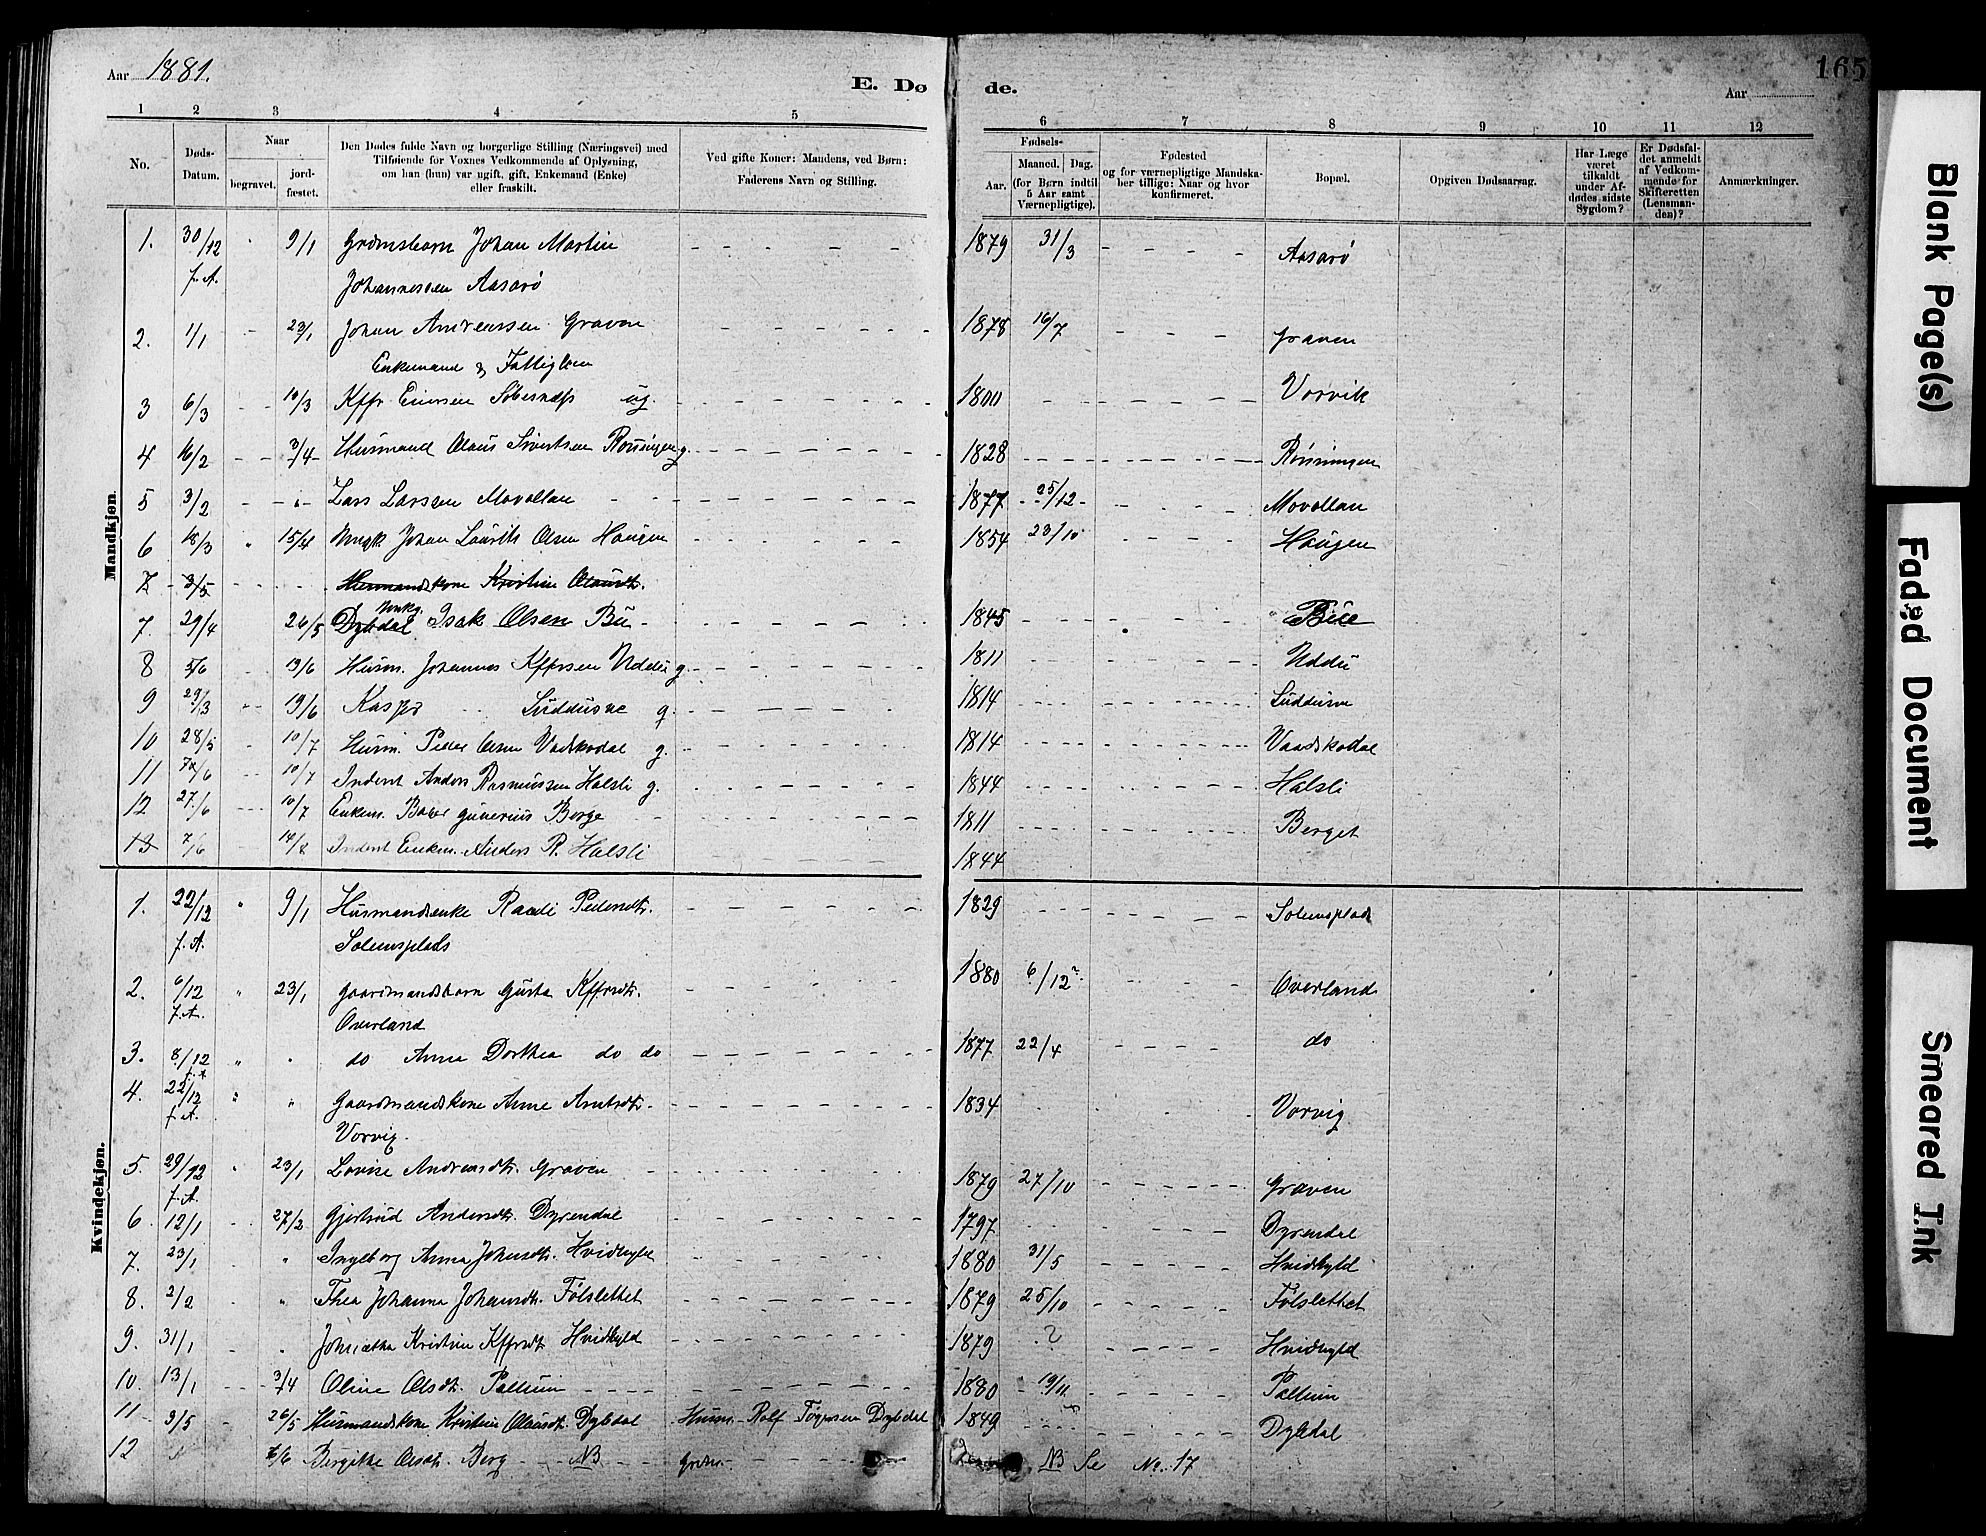 Aar 1881.
E. Dø
de.
165
Aar
1 2 3 4 5 6 7 8 9 10 11 12
No.
Døds-
Datum.
Naar
begravet.
jord-
fæstet.
Den Dødes fulde Navn og borgerlige Stilling (Næringsvei) med
Tilføiende for Voxnes Vedkommende af Oplysning,
om han (hun) var ugift, gift, Enkemand (Enke)
eller fraskilt.
Ved gifte Koner: Mandens, ved Børn:
Faderens Navn og Stilling.
Fødsels-
Aar.
Maaned. Dag.
(for Børn indtil
5 Aar samt
Værnepligtige).
Fødested
og for værnepligtige Mandska-
ber tillige: Naar og hvor
konfirmeret.
Bopæl.
Opgiven Dødsaarsag.
Har Læge
været
tilkaldt
under Af-
dødes sidste
Sygdom?
Er Dødsfal-
det anmeldt
af Vedkom-
mende for
Skifteretten
(Lensman-
den)?
Anmærkninger.
Mandkjøn.
1. 30/12 9/1 Johan Martin 1879 31/3 Aasarø
f. A. Johannessen Aasarø
2. 1/1 23/1 Johan Andreassen Graven 1878 16/7 Graven
Enkemand & Fattiglem
3 6/3 10/3 Kffr Enersen ug. 1800 Vorvik
4 16/2 3/4 Husmand Olaus Sivertsen Rønningen g. 1828 Rønningen
5 3/2 " Lars Larssen Movollan 1877 25/12 Movollan
6 18/3 " 15/4 Ungk. Johan Laurits Olsen Haugen 1854 23/10 Haugen
7 3/5 Husmandskone Kristine Olausdt.
7. 29/4 26/5 Dybdal Ungk. Isak Olsen Bu 1845 Bue
8 5/6 19/6 Husm. Johannes Kffrsen Uddu g. 1811 Uddu
9 29/3 19/6 Kasper Suddusve g. 1814 Suddusve
10 28/5 10/7 Husm. Peder Olsen Vadskodal g. 1814 Vaadskodal
11 7/6 10/7 Inderst Anders Rasmussen Halsli g. 1844 Halsli
12 27/6 10/7 Enkem. Gunerius Berge 1811 Berget
13 7/6 14/8 Inderst Enkem. Anders R. Halsli 1844
Kvindekjøn.
1. 22/12 " 9/1 Husmandsenke Pedersdt. 1829 Solemsplads
f. A. Solemsplads
2. 6/12 " 23/1 Gaardmandsbarn Gusta Kffrsdt. 1880 6/12 ? Overland
f. A. Overland
3. 8/12 " " do Anna Dorthea do do 1877 22/4 do
f. A
4. 22/12 " " Gaardmandskone Anne Arntsdt. 1834 Vorvig
f. A. Vorvig.
5. 29/12 " 23/1 Lovise Andreasdt. Graven 1879 27/10 Graven
f. A.
6. 12/1 27/2 Gjertrud Andersdt. Dyrendal 1797 Dyrendal
7. 23/1 " Ingeborg Anna Johnsdt. Hvidbyld 1880 31/5 Hvidbyld
8. 2/2 " Thea Johanna Johansdt. Følslettet 1879 25/10 Følslettet
9. 31/1 " Kristine Kffrsdt. Hvidbyld 1879 ? Hvidbyld
10. 13/1 3/4 Oline Olsdt. Pallum 1880 19/11 Pallum
11 3/5 26/5 Husmandskone Kristine Olausdt. Dybdal Husm. Rolf Dybdal 1849 Dybdal
12 6/6 Bergitte Olsdt. Berg NB NB Se No. 17
Blank Page(s)
Faded Document
Smeared Ink